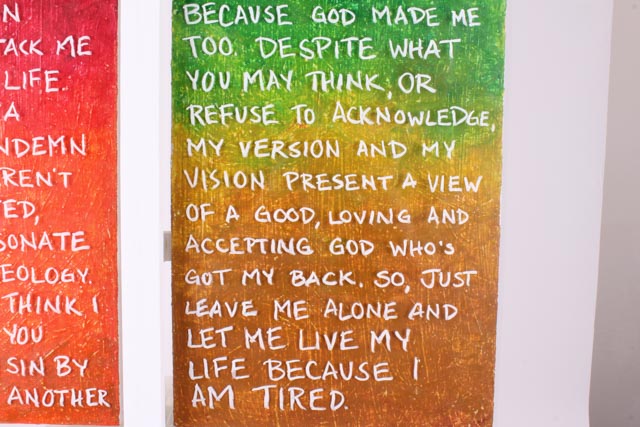 N
TACK ME
LIFE.
A
NDEMN
REN'T
TED,
SONATE
EOLOGY.
THINK I
YOU
SIN BY
ANOTHER
BECAUSE GOD MADE ME
TOO. DESPITE WHAT
YOU MAY THINK, OR
REFUSE TO ACKNOWLEDGE,
MY VERSION AND MY
VISION PRESENT A VIEW
OF A GOOD, LOVING AND
ACCEPTING GOD WHO'S
GOT MY BACK. SO, JUST
LEAVE ME ALONE AND
LET ME LIVE MY
LIFE BECAUSE I
AM TIRED.